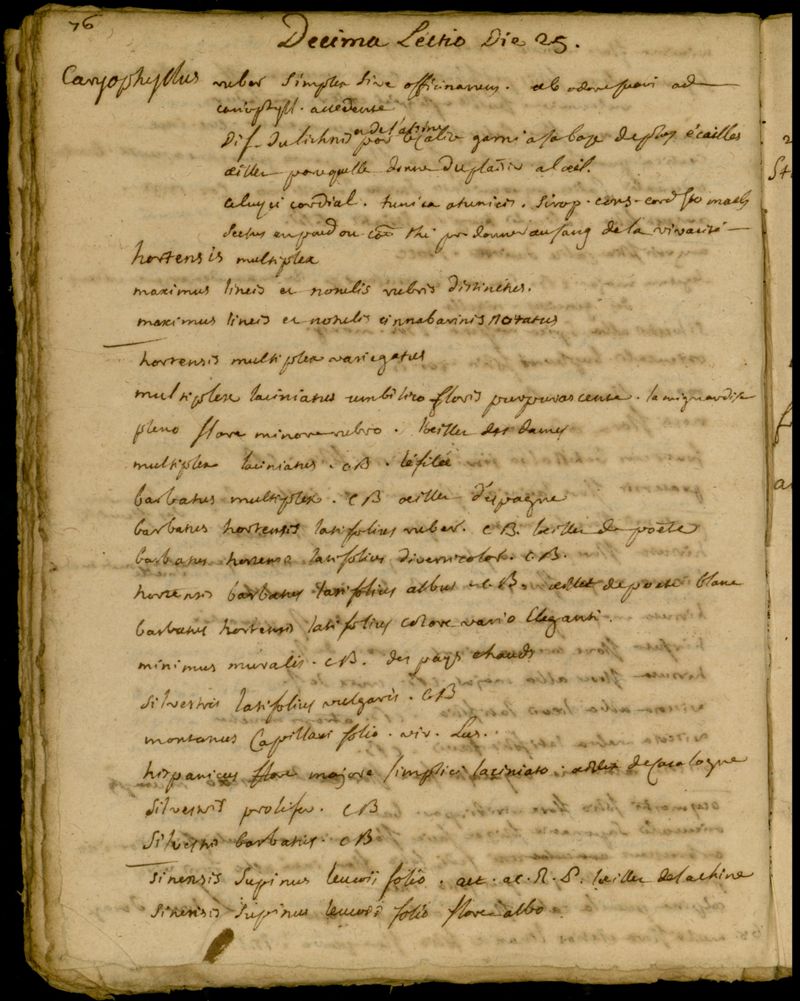 76
Decima Lectio Die 25.
Caryophyllus ruber simplex sive officinarum. ab odore suavi ad
cariophyll. accedente
Dif. du lichnis et de l'alsine par le calix garni a sa base de plus écailles
œillet parcequelle donne du plaisir a l'œil.
celuyci cordial. tunica atunicis. sirop. cons. cord. stomach
sectus en poud ou the pr donner au sang de la vivacité
hortensis multiplex
maximus lineis et notulis rubris distinctus.
maximus lineis et notulis cinnabarinis notatus
hortensis multiplex variegatus
multiplex laciniatus umbilico floris purpurascente. la mignardise
pleno flore minore rubro. l'œillet des dames
multiplex laciniatus. CB. l'éfilée
barbatus multiplex. CB œillet d'espagne
barbatus hortensis latifolius ruber. CB. l'œillet de poëte
barbatus hortens latifolius diversicolor. CB.
hortensis barbatus latifolius albus CB. œillet de poete blanc
barbatus hortensis latifolius colore vario Eleganti.
minimus muralis. CB. des pays chauds
silvestris latifolius vulgaris. CB
montanus Capillari folio. vir. Lus.
hispanicus flore majore simplici laciniato. œillet de Catalogne
silvestris prolifer. CB
silvestris barbatus. CB
sinensis supinus leucoii folio. act. ac. R. P. l'œillet de la chine
sinensis supinus leucoii folio flore albo.